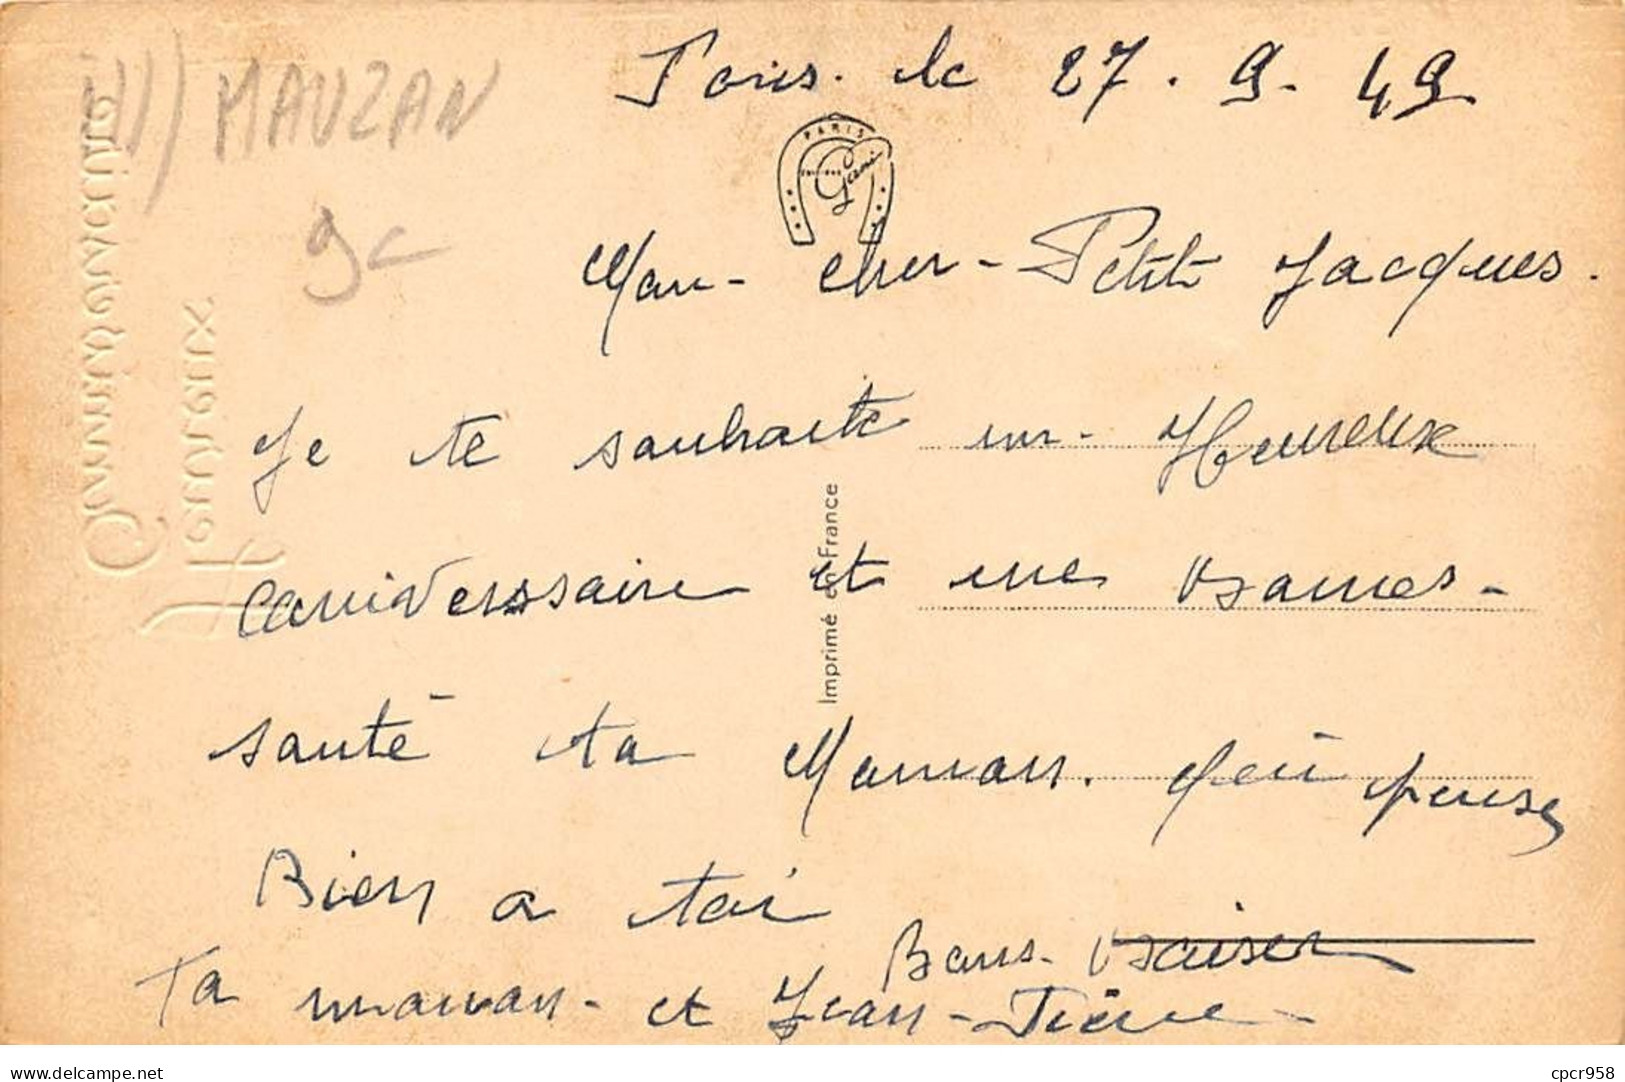 Paris. le 27. 9. 49
111) MAUZAN
9c
PARIS
Mon - cher - Petit Jacques.
Je te souhaite un - Heureux
anniverssaire et une bonnes -
santé ta Maman. qui pense
Bien a toi
Bons - baiser
Ta maman - et Jean - Pierre -
Imprimé en France
Anniversaire
Heureux
delcampe.net
cpcr958